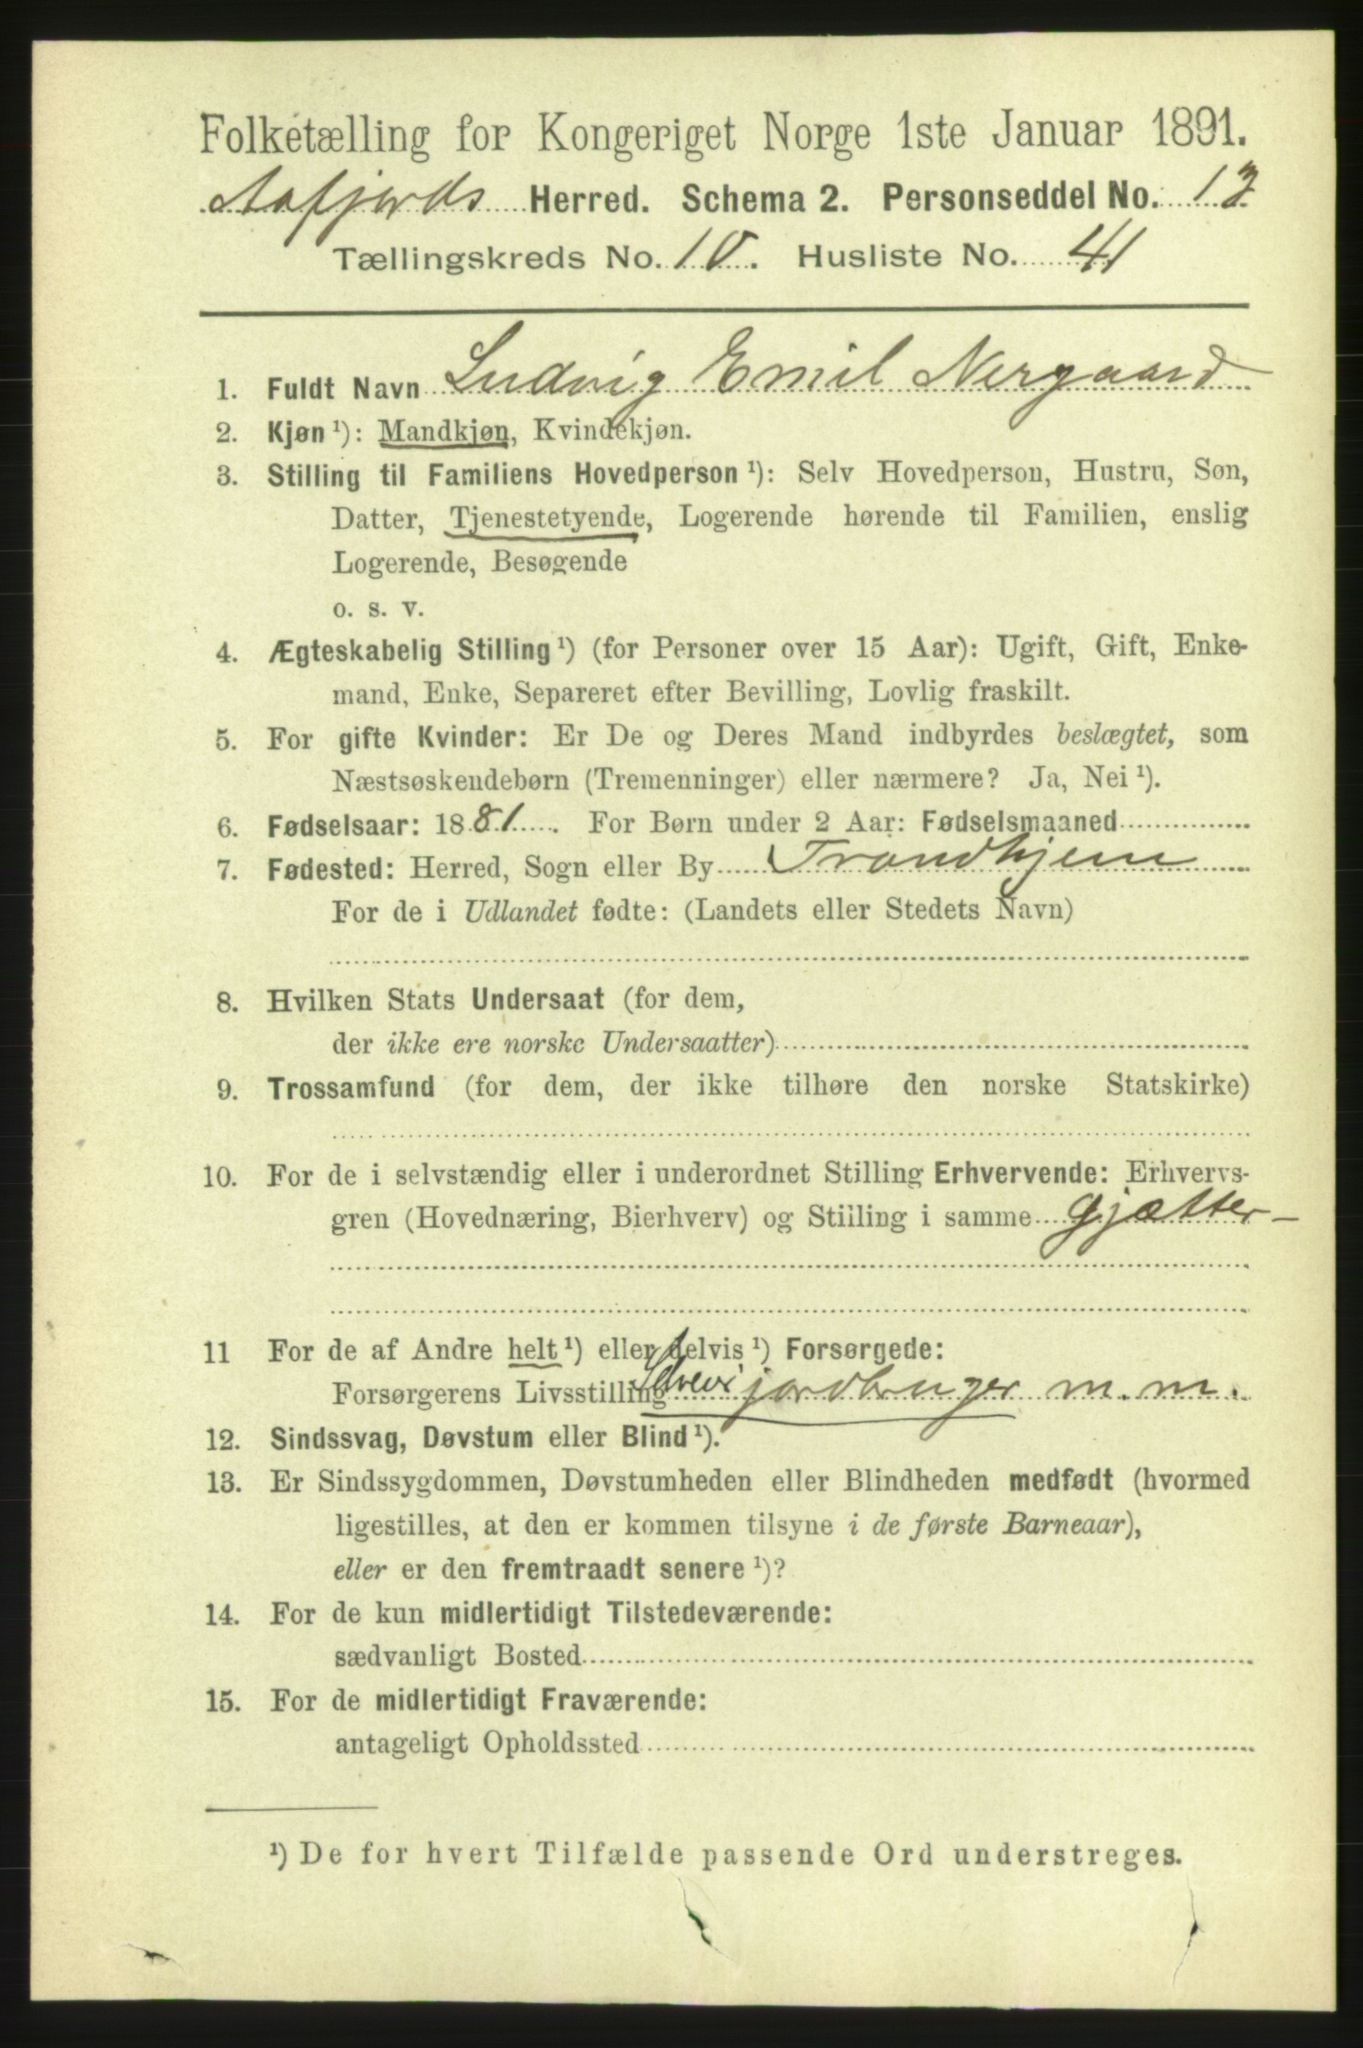 Folketælling for Kongeriget Norge 1ste Januar 1891.
Aafjords Herred. Schema 2. Personseddel No. 12
Tællingskreds No. 10. Husliste No. 41
1. Fuldt Navn Ludvig Emil Nergaard
2. Kjøn ¹): Mandkjøn, Kvindekjøn.
3. Stilling til Familiens Hovedperson ¹): Selv Hovedperson, Hustru, Søn,
Datter, Tjenestetyende, Logerende hørende til Familien, enslig
Logerende, Besøgende
o. s. v.
4. Ægteskabelig Stilling ¹) (for Personer over 15 Aar): Ugift, Gift, Enke-
mand, Enke, Separeret efter Bevilling, Lovlig fraskilt.
5. For gifte Kvinder: Er De og Deres Mand indbyrdes beslægtet, som
Næstsøskendebørn (Tremenninger) eller nærmere? Ja, Nei ¹).
6. Fødselsaar: 1881. For Børn under 2 Aar: Fødselsmaaned
7. Fødested: Herred, Sogn eller By Trondhjem
For de i Udlandet fødte: (Landets eller Stedets Navn)
8. Hvilken Stats Undersaat (for dem,
der ikke ere norske Undersaatter)
9. Trossamfund (for dem, der ikke tilhøre den norske Statskirke)
10. For de i selvstændig eller i underordnet Stilling Erhvervende: Erhvervs-
gren (Hovednæring, Bierhverv) og Stilling i samme Gjætter
11 For de af Andre helt ¹) eller delvis ¹) Forsørgede:
Forsørgerens Livsstilling jordbruger m.m.
12. Sindssvag, Døvstum eller Blind ¹).
13. Er Sindssygdommen, Døvstumheden eller Blindheden medfødt (hvormed
ligestilles, at den er kommen tilsyne i de første Barneaar),
eller er den fremtraadt senere ¹)?
14. For de kun midlertidigt Tilstedeværende:
sædvanligt Bosted
15. For de midlertidigt Fraværende:
antageligt Opholdssted
¹) De for hvert Tilfælde passende Ord understreges.